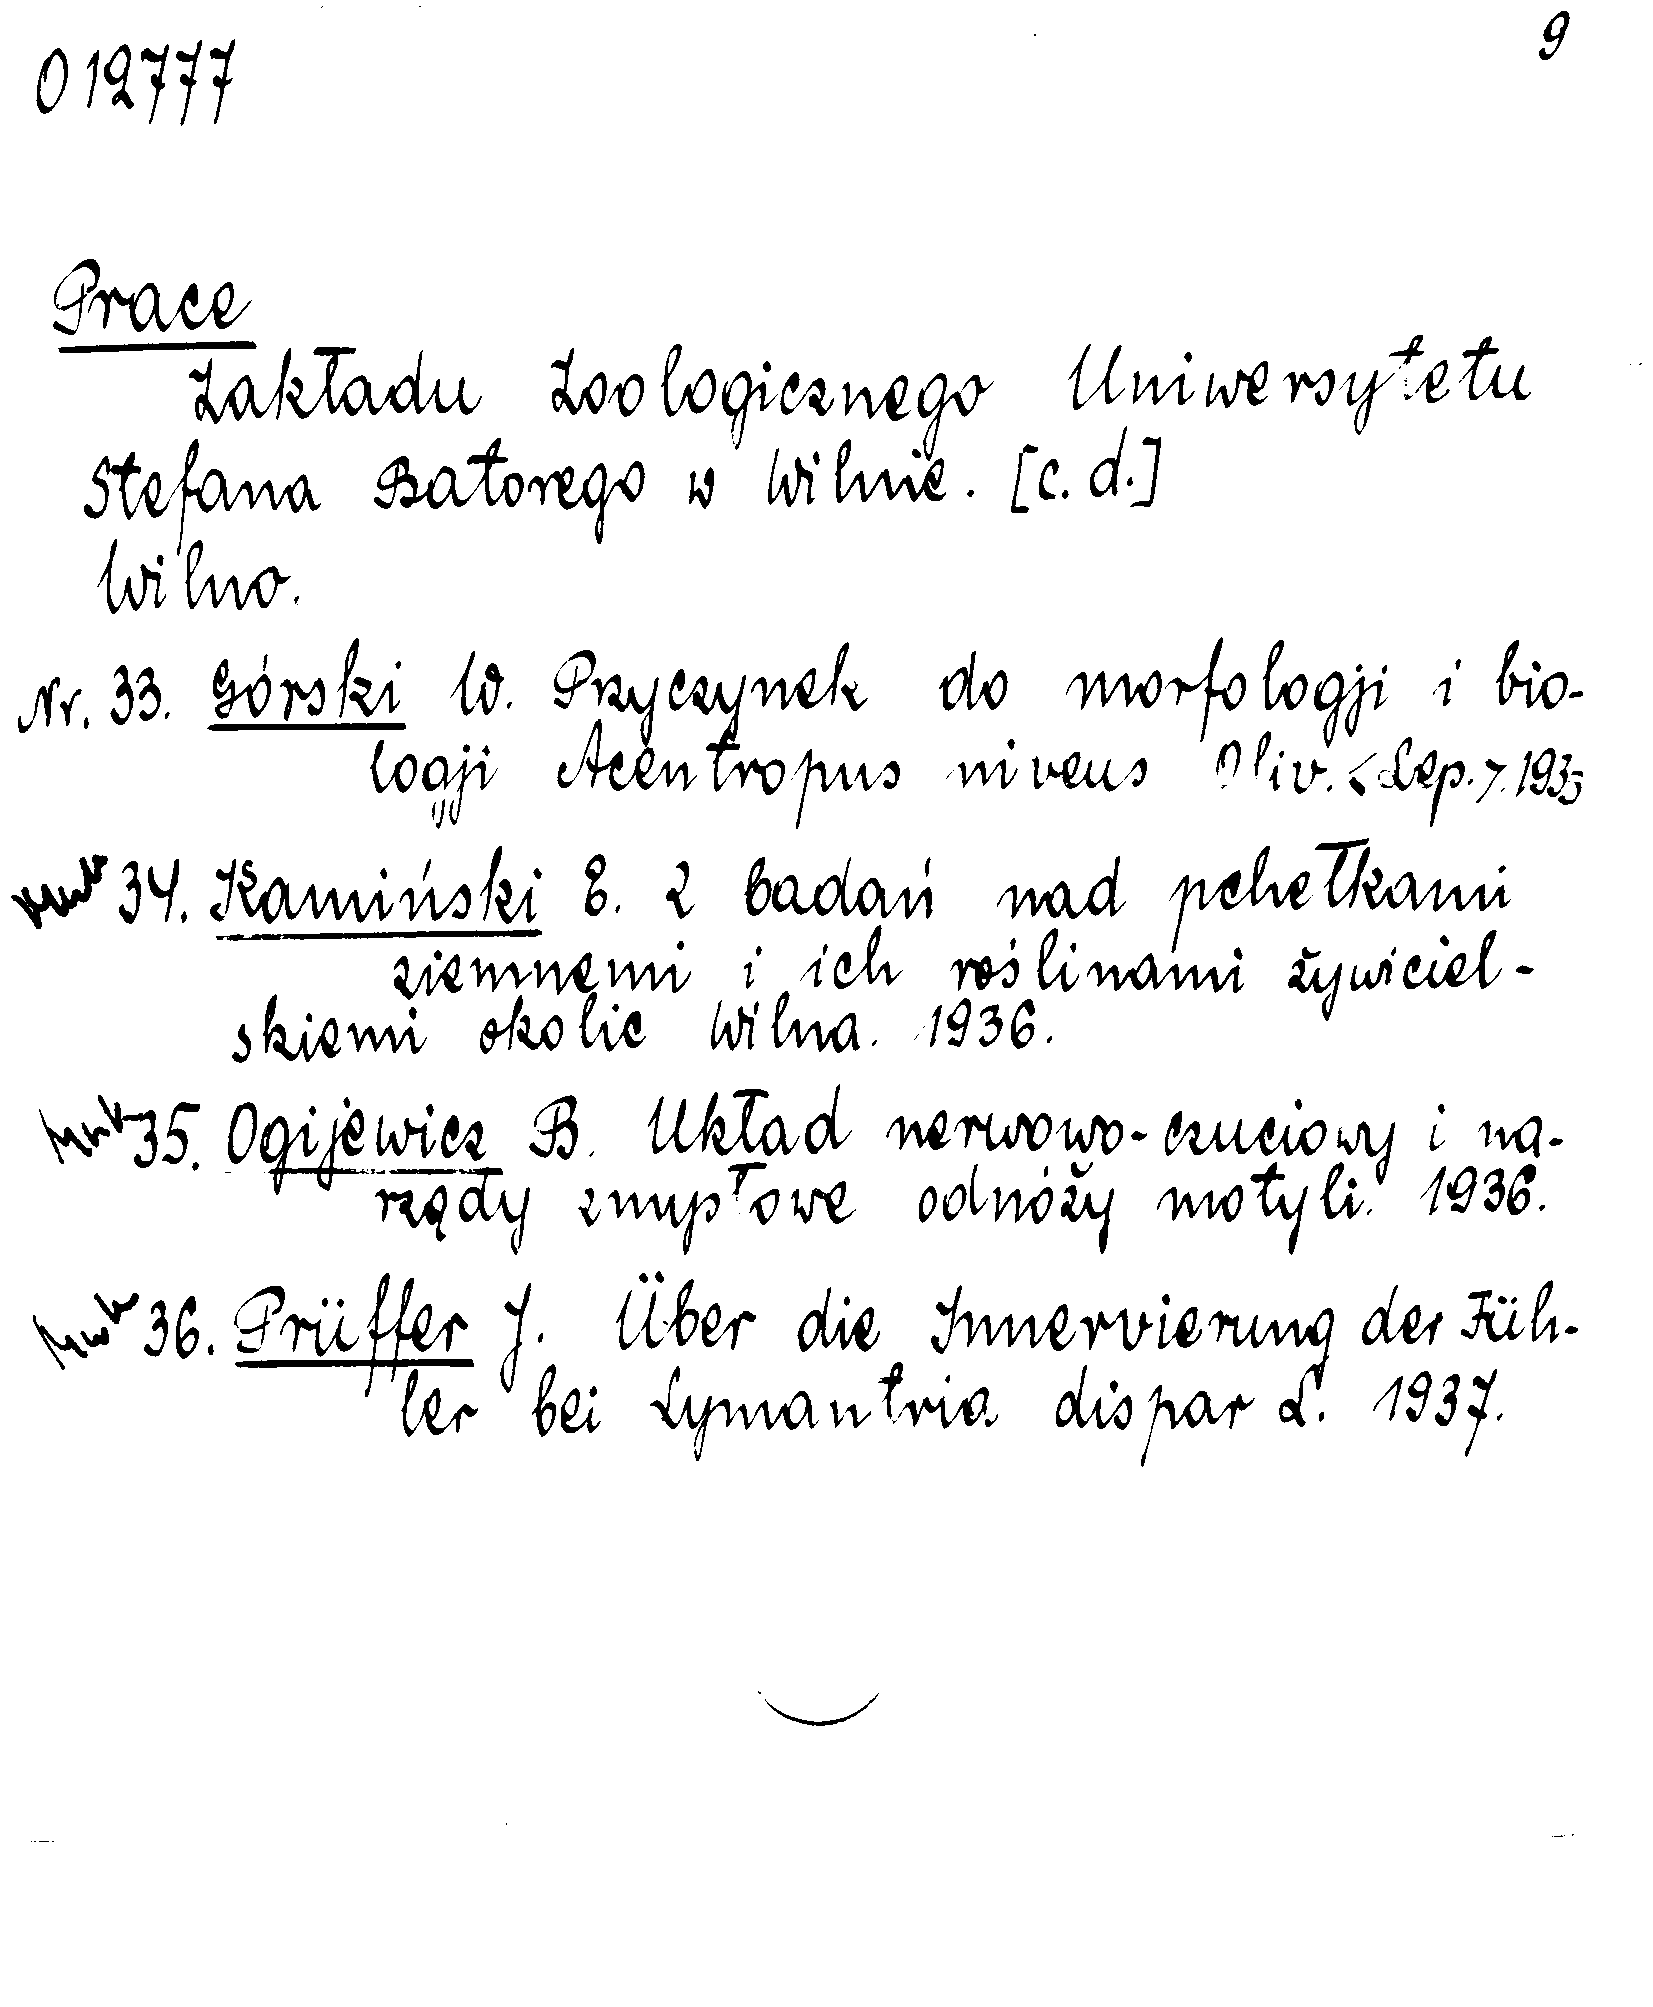 012777
9
Prace
Zakładu Zoologicznego Uniwersytetu
Stefana Batorego w Wilnie. [c.d.]
Wilno.
Nr. 33. Górski W. Przyczynek do morfologji i bio-
logji Acentropus niveus Oliv. <Lep.>. 1935
34. Kamiński E. Z badań nad pchełkami
ziemnemi i ich roślinami żywiciel-
skiemi okolic Wilna. 1936.
35. Ogijewicz B. Układ nerwowo-czuciowy i na-
rządy zmysłowe odnóży motyli. 1936.
36. Prüffer J. Über die Innervierung der Füh-
ler bei Lymantria dispar L. 1937.